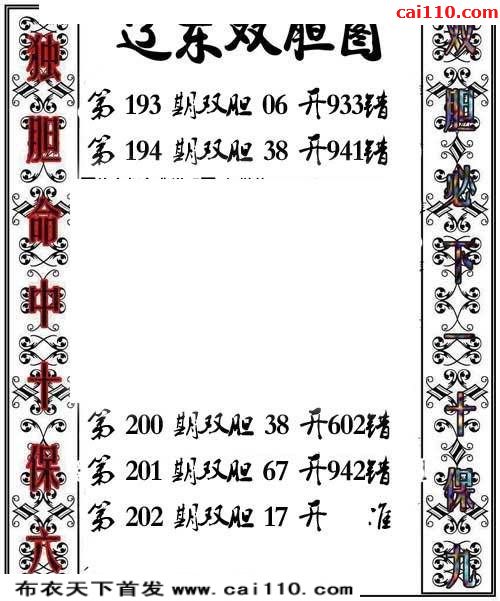 cai110.com
辽东双胆图
独胆命中十保六
第 193 期双胆 06 开933错
第 194 期双胆 38 开941错
第 200 期双胆 38 开602错
第 201 期双胆 67 开942错
第 202 期双胆 17 开 准
双胆必下一十保九
布衣天下首发 www.cai110.com